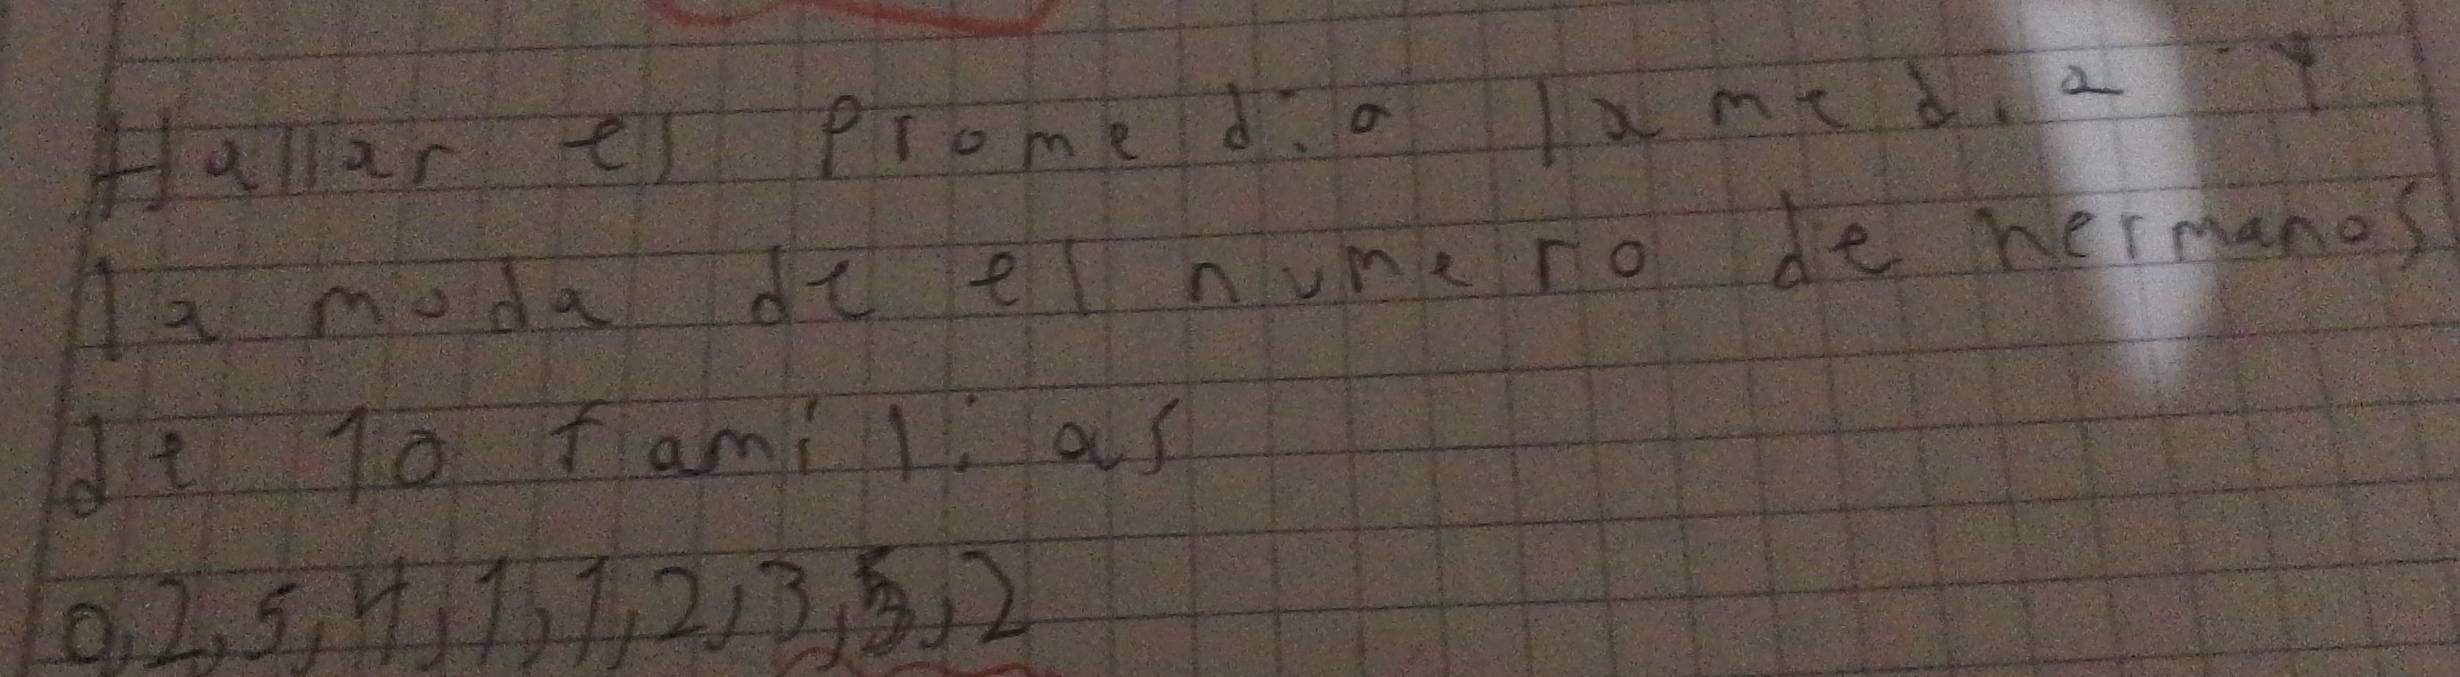 Hallar el Promedio la media y
la moda de el numero de hermanos
de 10 familias
0,2,5,4,1,1,2,3,5,2